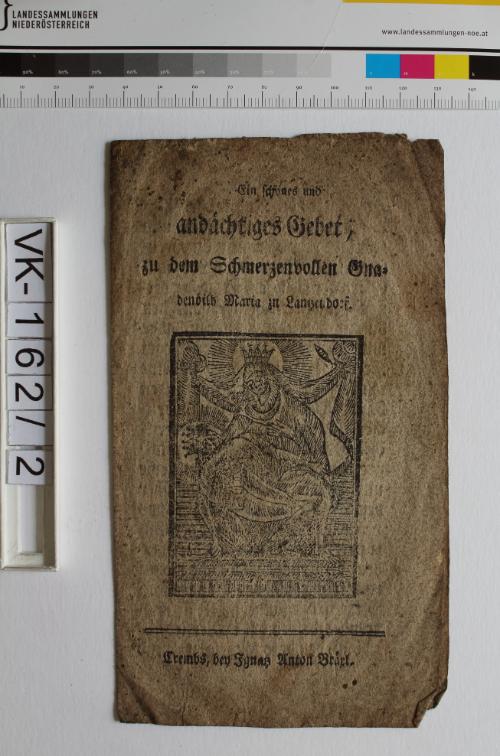 LANDESSAMMLUNGEN
NIEDERÖSTERREICH
www.landessammlungen-noe.at
VK-162/2
Ein schönes und
andächtiges Gebet,
zu dem Schmerzenvollen Gna-
denbild Maria zu Lanzendorf.
Crembs, bey Ignatz Anton Präxl.